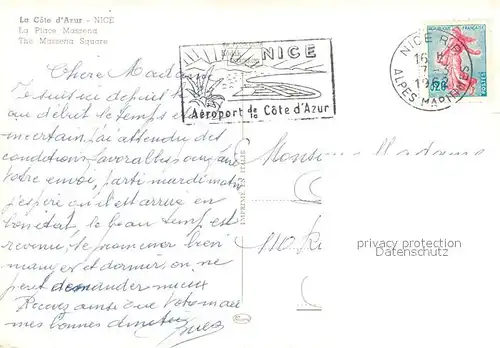 La Côte d'Azur - NICE
La Place Massena
The Massena Square
NICE
Aéroport de la Côte d'Azur
NICE R.P.
16 H
ALPES MARITIMES
REPUBLIQUE FRANÇAISE
0,20
POSTES
Chère Madame
Je suis ici depuis
au début le temps est
incertain, j'ai attendu des
conditions favorables
votre envoi, parti mardi matin
j'espère qu'il est arrivé en
bon état, le beau temps est
revenu, se promener bien
manger et dormir, on ne
peut demander mieux
Recevez ainsi que
mes bonnes amitiés
Monsieur Madame
110 R
IMPRIMÉ EN ITALIE
privacy protection
Datenschutz